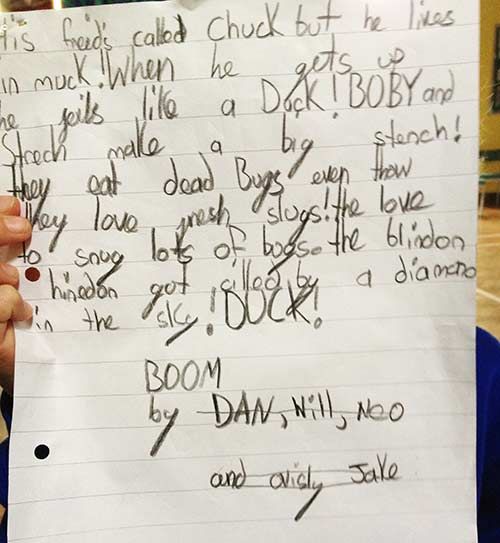 tis freids called Chuck but he lives
in muck! When he gets up
he feils like a Duck! BOBY and
Strech make a big stench!
they eat dead Bugs even thow
they love fresh slugs! the love
to snug lots of bogs. the blindon
hinedon got cilled by a diamond
in the sky! DUCK!
BOOM
by DAN, Will, Neo
and ovisly Jake